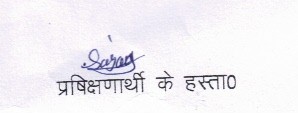 Sarag
प्रषिक्षणार्थी के हस्ता0